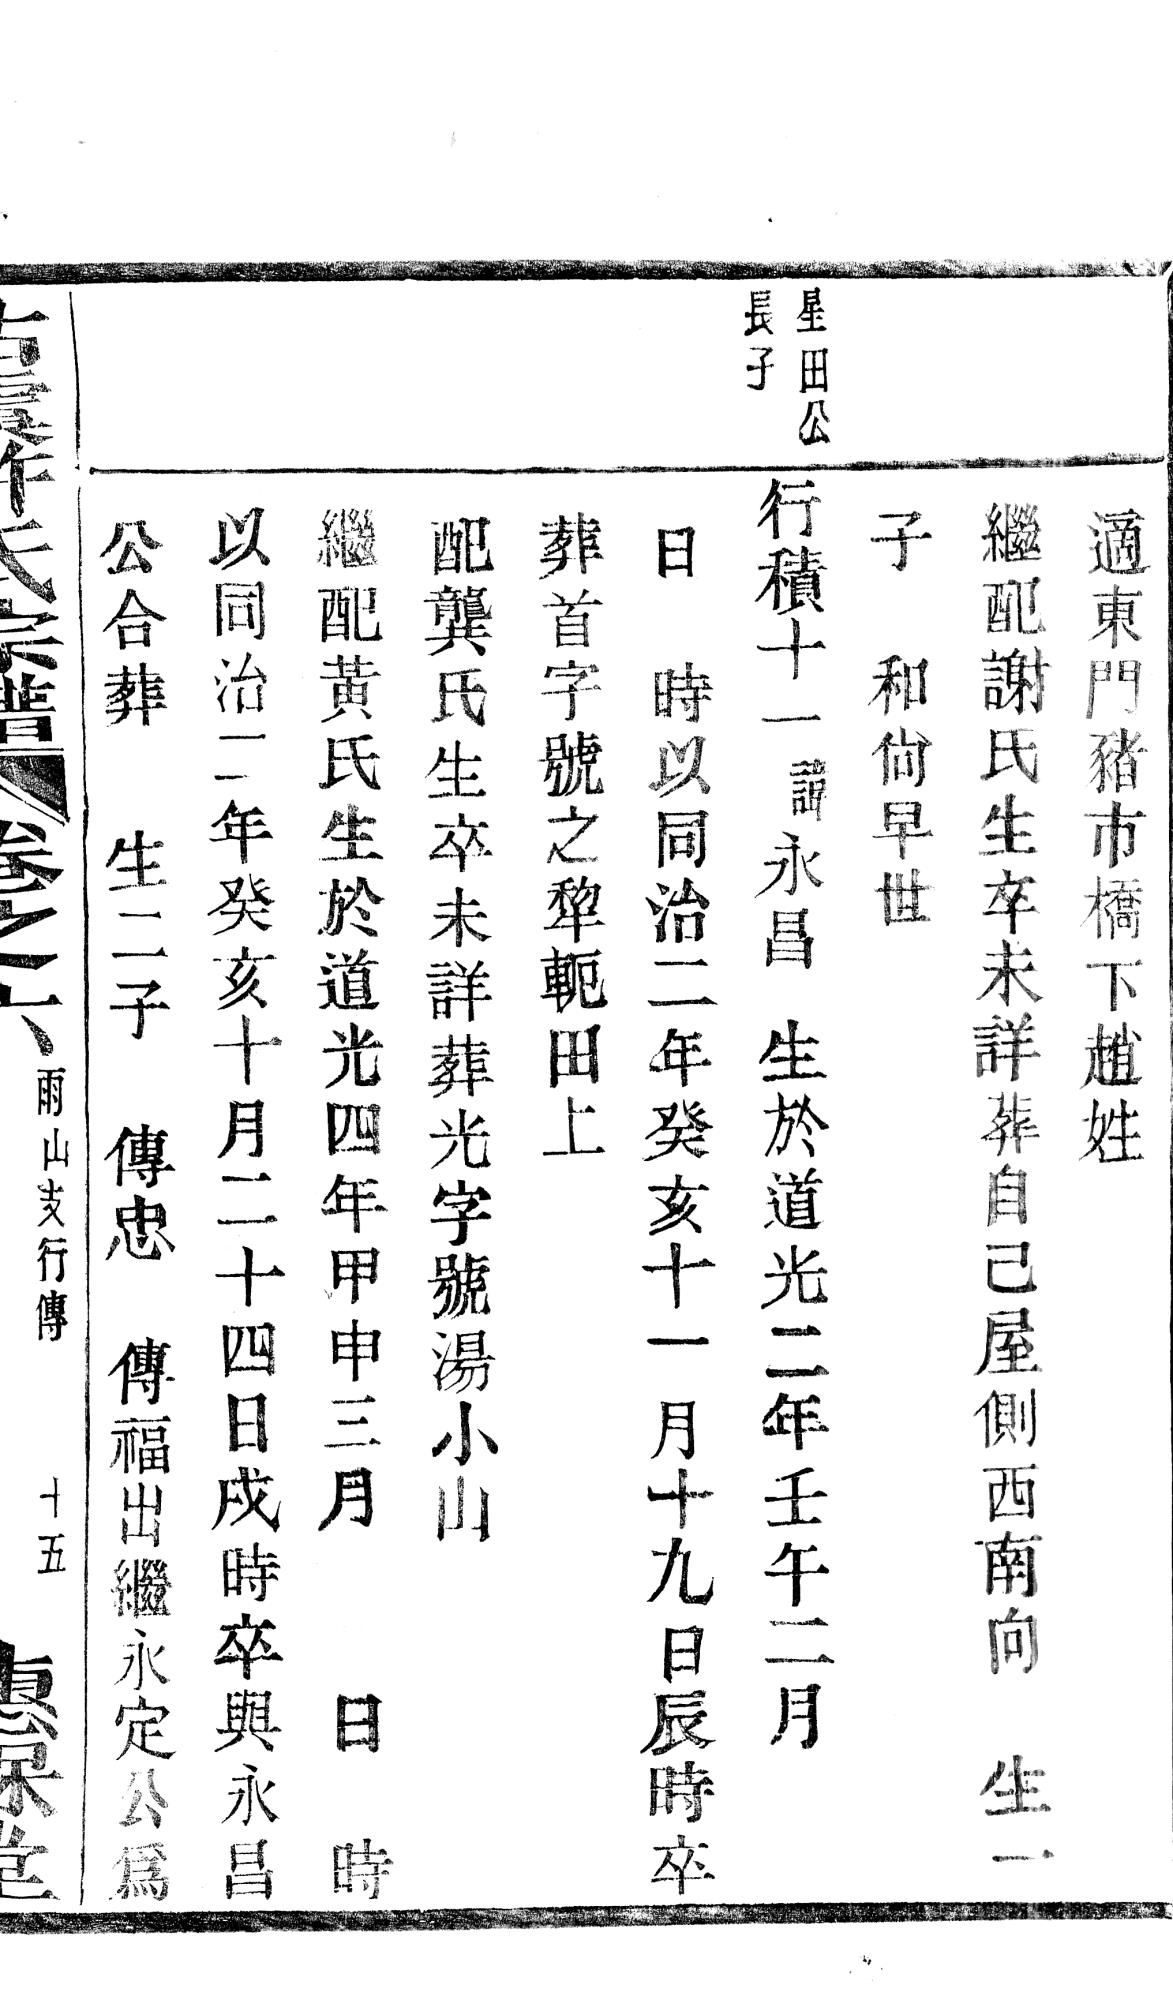 適東門豬市橋下趙姓
繼配謝氏生卒未詳葬自己屋側西南向　生一
子　和尙早世
星田公
長子
行積十一諱永昌　生於道光二年壬午二月
日　時以同治二年癸亥十一月十九日辰時卒
葬首字號之犂軛田上
配龔氏生卒未詳葬光字號湯小山
繼配黃氏生於道光四年甲申三月　日　時
以同治二年癸亥十月二十四日戌時卒與永昌
公合葬　生二子　傳忠　傳福出繼永定公爲
古虞許氏宗譜　卷之六　雨山支行傳　十五　惠保堂